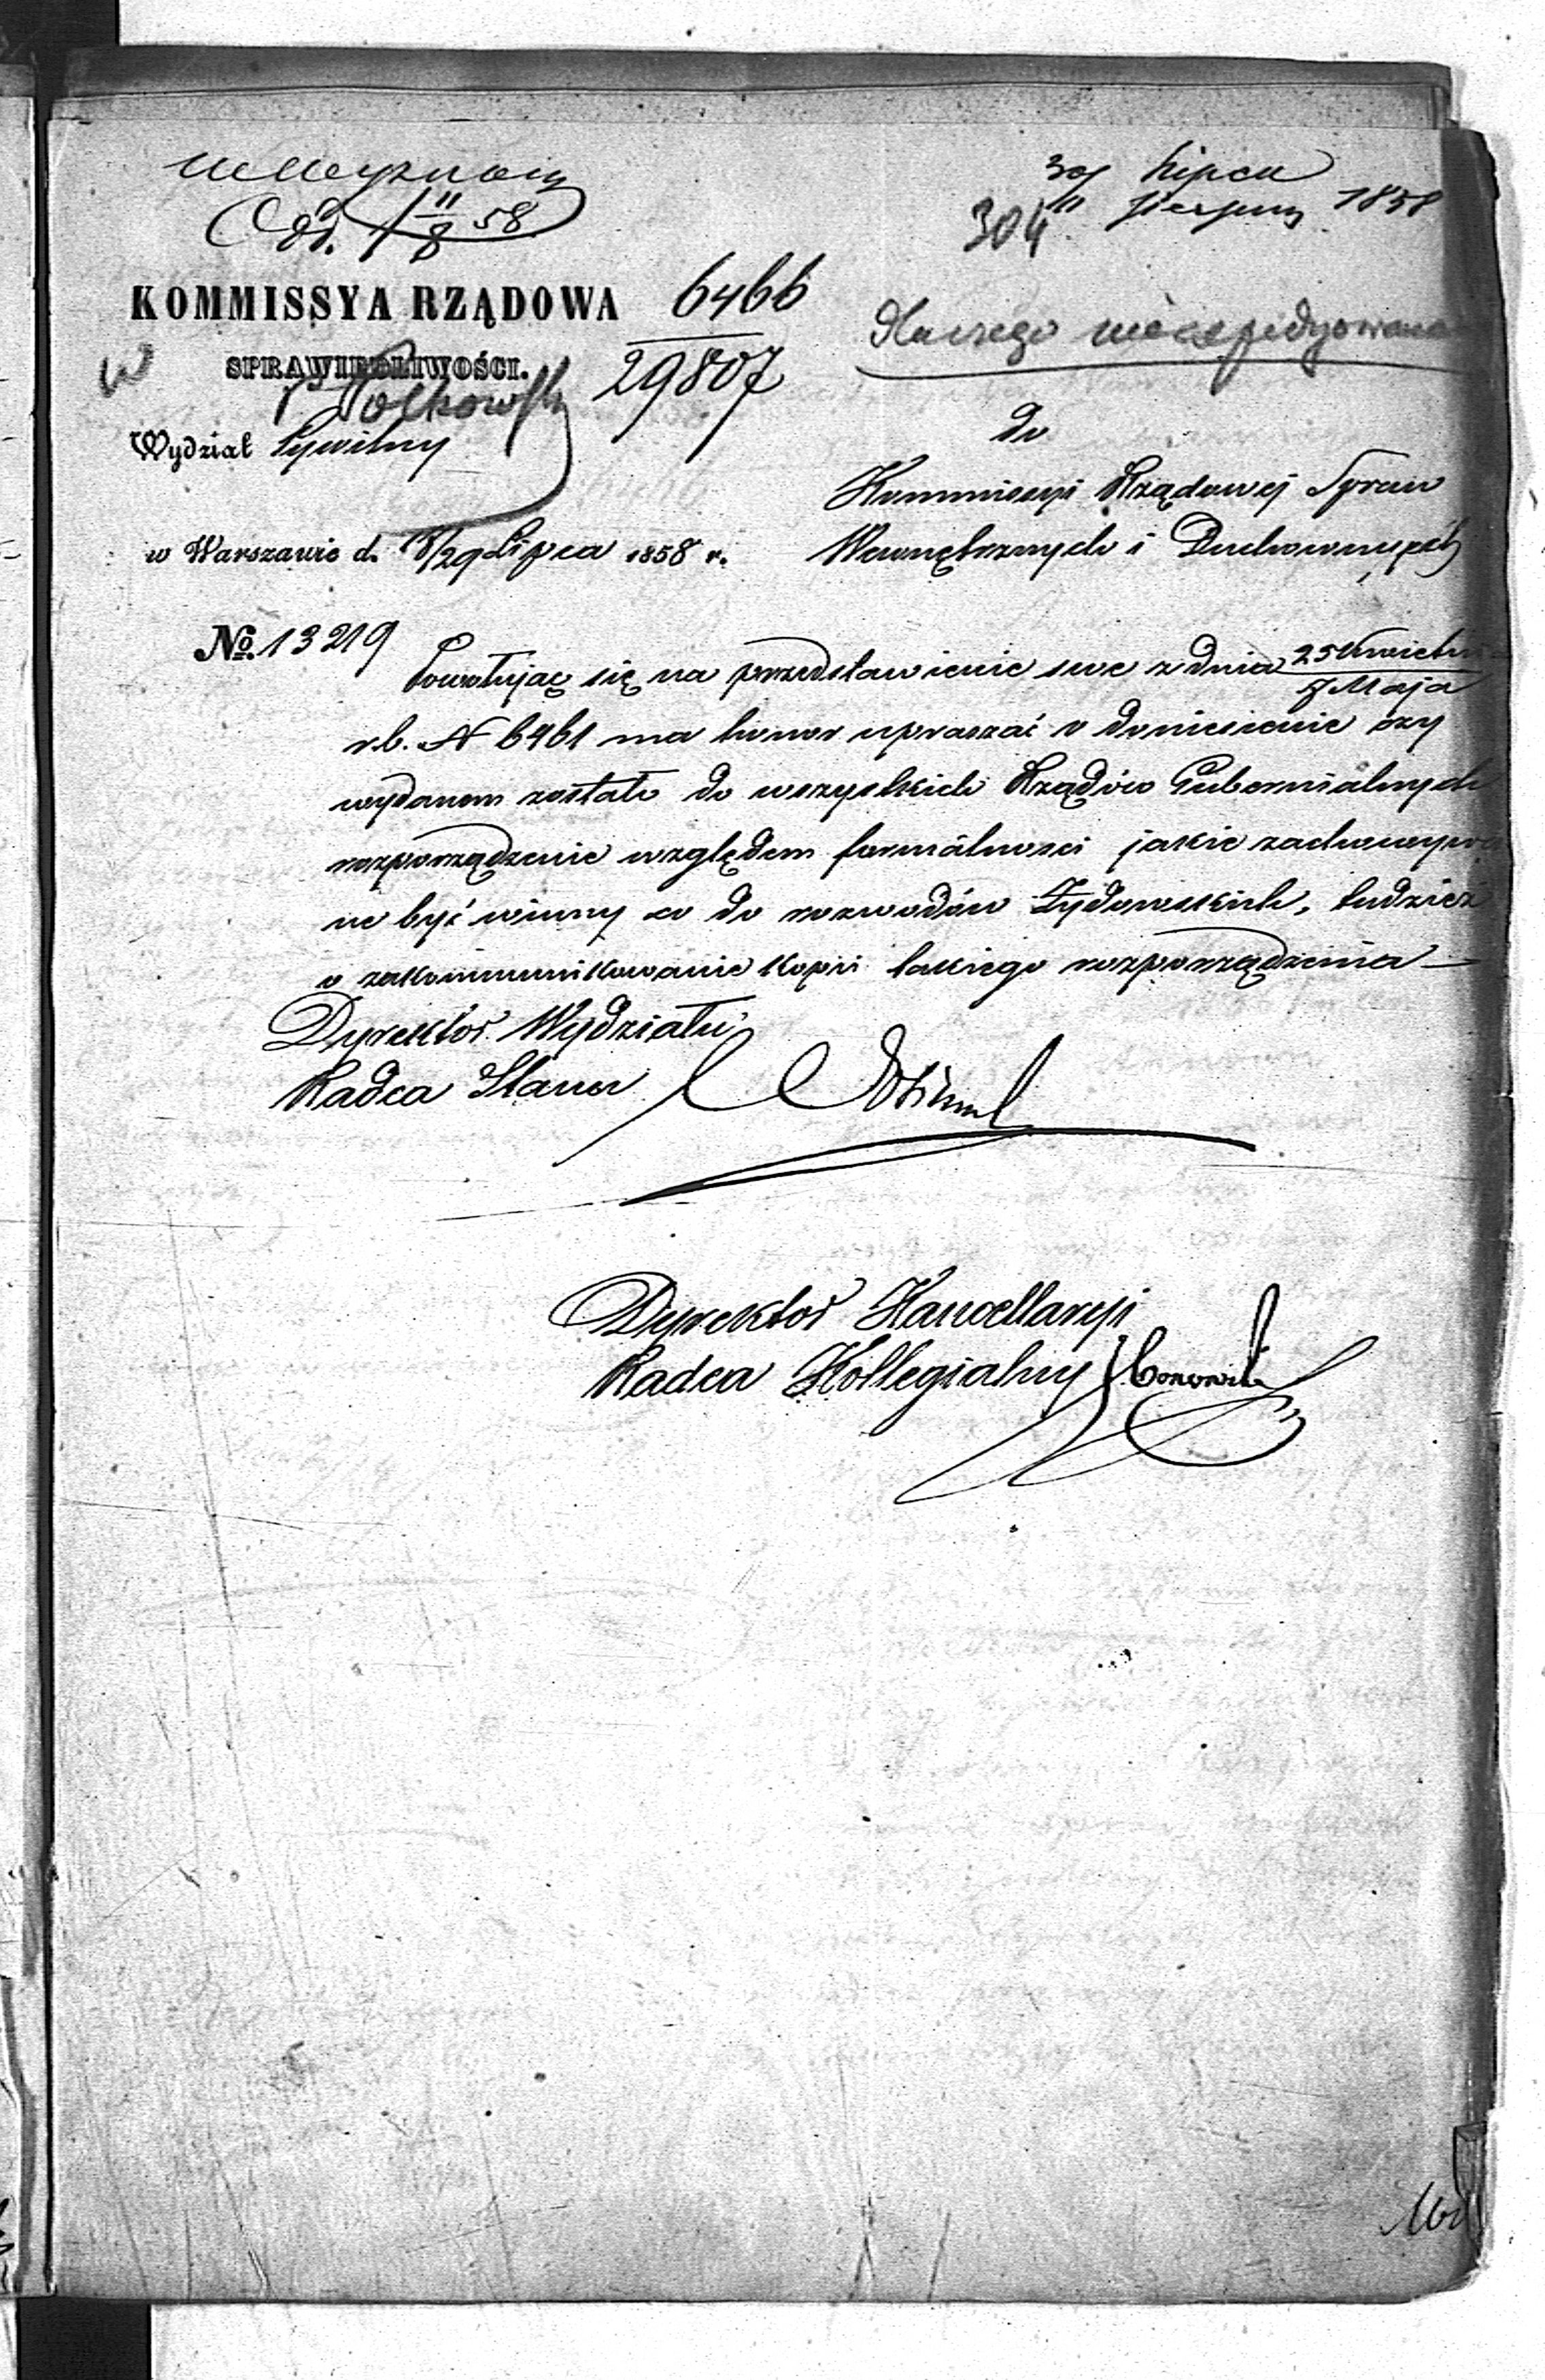 30 Lipca
11 Sierpnia 1858
304
11/8 58
KOMMISSYA RZĄDOWA
SPRAWIEDLIWOŚCI.
6466
29807
Dlaczego nieexpedyowana
Wydział Cywilny
do
Kommissyi Rządowej Spraw
Wewnętrznych i Duchownych
w Warszawie d. 17/29 Lipca 1858 r.
No. 13219
Powołując się na przedstawienie swe z dnia 25 Kwietnia / 7 Maja
r.b. N 6461 ma honor upraszać o doniesienie czy
wydanem zostało do wszystkich Rządów Gubernialnych
rozporządzenie względem formalności jakie zachowywa
ne być winny co do rozwodów Żydowskich, tudzież
o zakommunikowanie kopii takiego rozporządzenia —
Dyrektor Wydziału
Radca Stanu
Dyrektor Kancellaryi
Radca Kollegialny